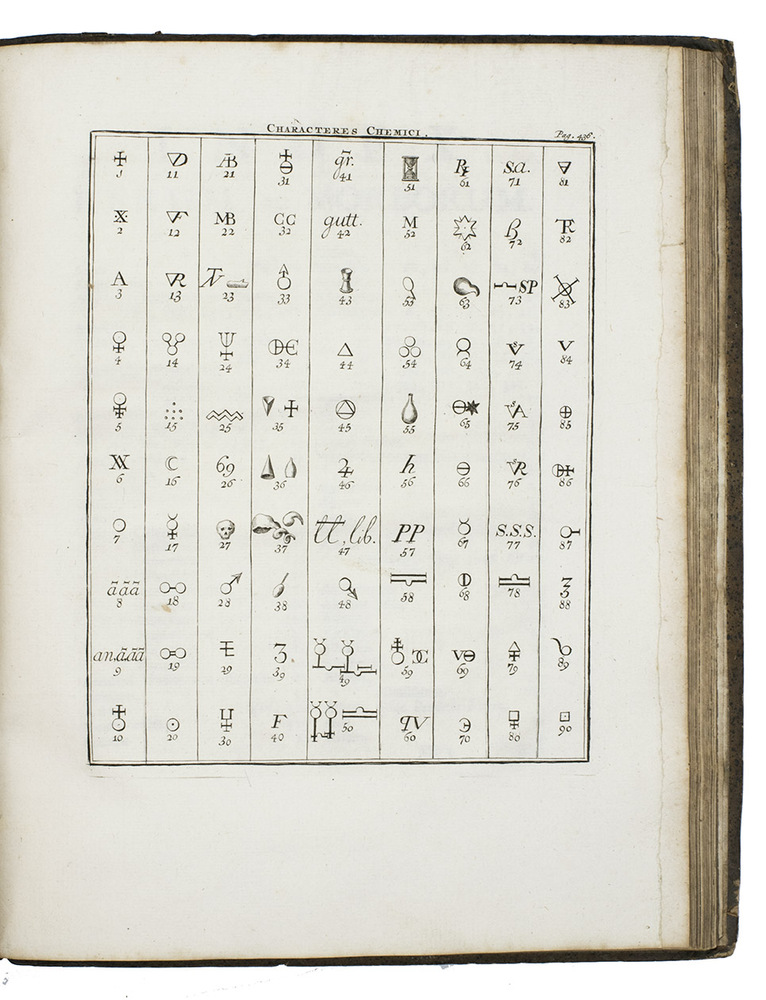 CHARACTERES CHEMICI.
Pag. 436.
1 11 21 31 gr. 41 51 61 S.a. 71 81
2 12 MB 22 CC 32 gutt. 42 M 52 62 72 82
A 3 13 23 33 43 53 63 SP 73 83
4 14 24 34 44 54 64 74 V 84
5 15 25 35 45 55 65 75 85
6 16 69 26 36 46 h 56 66 76 86
7 17 27 37 lib. 47 PP 57 67 S.S.S. 77 87
ā ā ā 8 18 28 38 48 58 68 78 88
an.ā.āā 9 19 29 39 49 59 69 79 89
10 20 30 F 40 50 qV 60 70 80 90